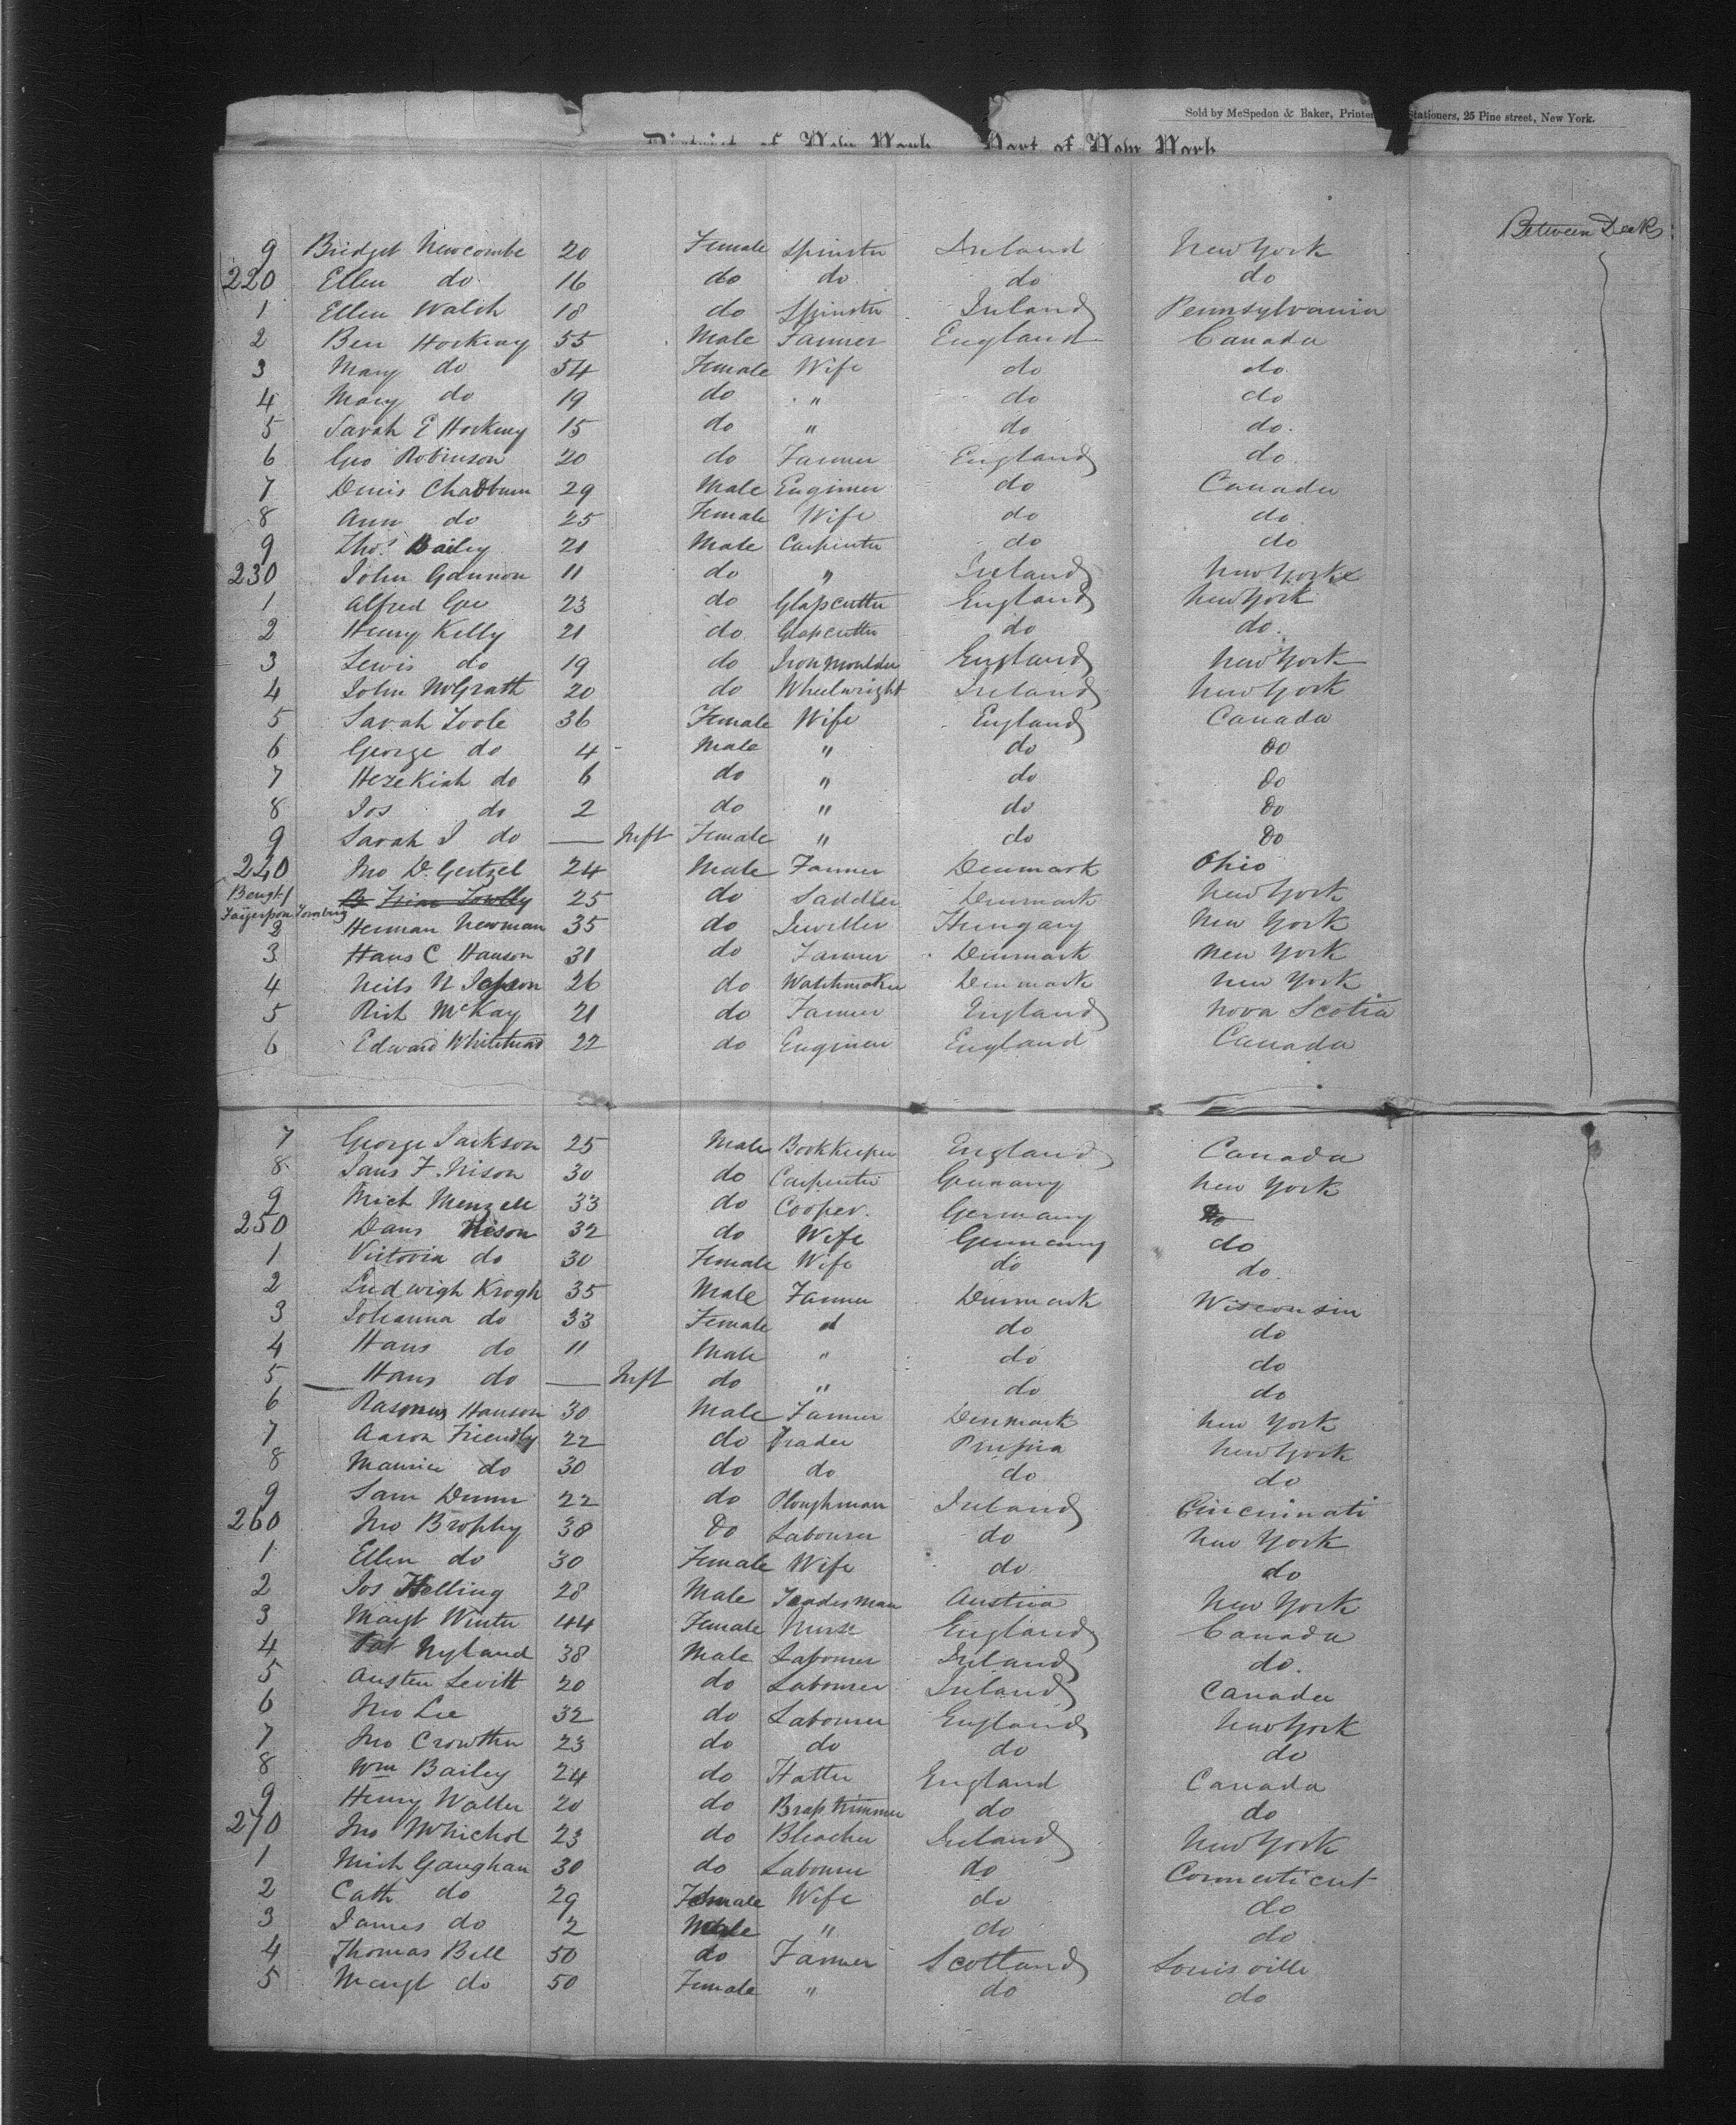 Sold by McSpedon & Baker, Printer Stationers, 25 Pine street, New York.
District of New York Port of New York
Between Decks
9 Bridget Newcombe 20 Female Spinster Ireland New York
220 Ellen do 16 do do do do
1 Ellen Walsh 18 do Spinster Ireland Pennsylvania
2 Ben Hocking 55 Male Farmer England Canada
3 Mary do 54 Female Wife do do
4 Mary do 19 do " do do
5 Sarah E Hocking 15 do " do do
6 Geo Robinson 20 do Farmer England do
7 Denis Chadburn 29 Male Engineer do Canada
8 Ann do 25 Female Wife do do
9 Thos Bailey 21 Male Carpenter do do
230 John Gannon 11 do " Ireland New York
1 Alfred Gee 23 do Glasscutter England New York
2 Henry Kelly 21 do Glasscutter do do
3 Lewis do 19 do Iron Moulder England New York
4 John McGrath 20 do Wheelwright Ireland New York
5 Sarah Toole 36 Female Wife England Canada
6 George do 4 Male " do do
7 Hezekiah do 6 do " do do
8 Jos do 2 do " do do
9 Sarah J do — Inft Female " do do
240 Jno D. Gertzel 24 Male Farmer Denmark Ohio
Bengt 25 do Saddler Denmark New York
2 Herman Newman 35 do Jeweller Hungary New York
3 Hans C Hanson 31 do Farmer Denmark New York
4 Neils N 26 do Watchmaker Denmark New York
5 Rich McKay 21 do Farmer England Nova Scotia
6 Edward Whitehead 22 do Engineer England Canada
7 George Jackson 25 Male Bookkeeper England Canada
8 Jans F. Nison 30 do Carpenter Germany New York
9 Mich Menzell 33 do Cooper Germany Do
250 Dans Nison 32 do Wife Germany do
1 Victoria do 30 Female Wife do do
2 Ludwigh Krogh 35 Male Farmer Denmark Wisconsin
3 Johanna do 33 Female d do do
4 Hans do 11 Male " do do
5 Hans do — Inft do " do do
6 Rasmus Hanson 30 Male Farmer Denmark New York
7 Aaron Friendly 22 do Trader Prussia New York
8 Maurice do 30 do do do do
9 Sam Dunn 22 do Ploughman Ireland Cincinnati
260 Jno Brophy 38 Do Labourer do New York
1 Ellen do 30 Female Wife do do
2 Jos Helling 28 Male Tradesman Austria New York
3 Margt Winter 44 Female Nurse England Canada
4 Pat Nyland 38 Male Labourer Ireland do
5 Austen Levitt 20 do Labourer Ireland Canada
6 Jno Lee 32 do Labourer England New York
7 Jno Crowther 23 do do do do
8 Wm Bailey 24 do Hatter England Canada
9 Henry Walter 20 do Brass trimmer do do
270 Jno McNichol 23 do Bleacher Ireland New York
1 Mich Gaughan 30 do Labourer do Connecticut
2 Cath do 29 Female Wife do do
3 James do 2 Male " do do
4 Thomas Bell 50 do Farmer Scotland Louisville
5 Margt do 50 Female " do do